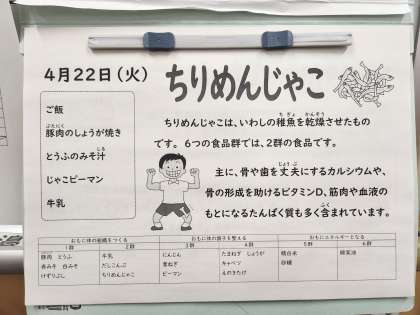 4月22日（火）
ちりめんじゃこ
ご飯
豚肉のしょうが焼き
とうふのみそ汁
じゃこピーマン
牛乳
ちりめんじゃこは、いわしの稚魚を乾燥させたもの
です。6つの食品群では、2群の食品です。
主に、骨や歯を丈夫にするカルシウムや、
骨の形成を助けるビタミンD、筋肉や血液の
もとになるたんぱく質も多く含まれています。
おもに体の組織をつくる おもに体の調子を整える おもにエネルギーとなる
1群 2群 3群 4群 5群 6群
豚肉 とうふ 牛乳 にんじん たまねぎ しょうが 精白米
赤みそ 白みそ だしこんぶ 葉ねぎ キャベツ 砂糖
けずりぶし ちりめんじゃこ ピーマン えのきたけ